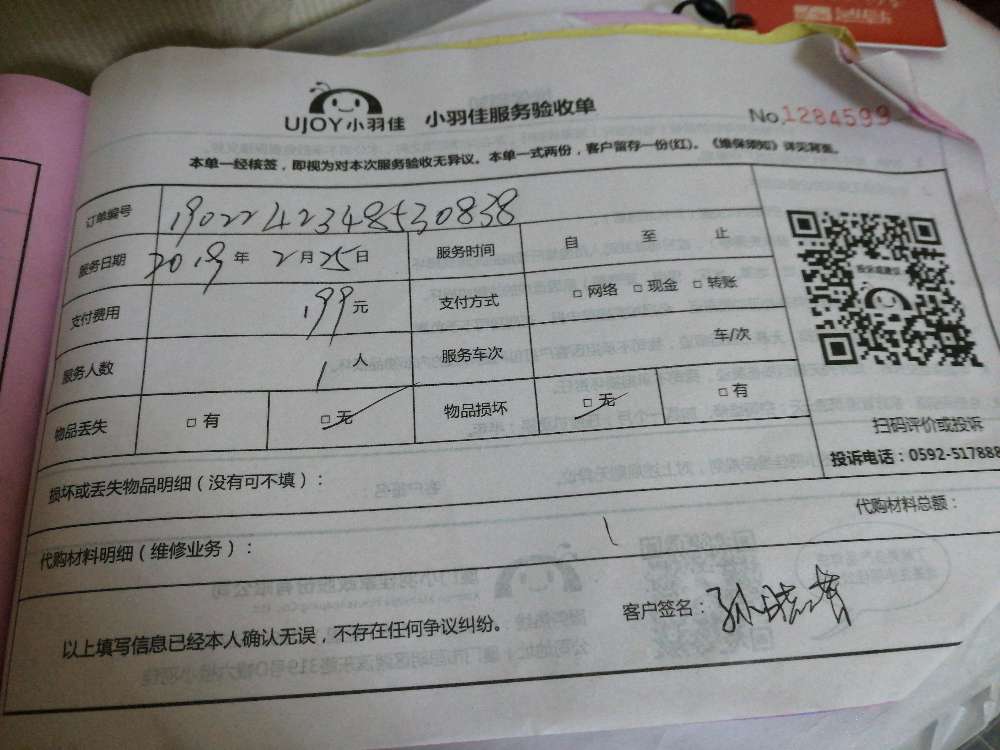 UJOY小羽佳 小羽佳服务验收单 No.1284599
本单一经核签，即视为对本次服务验收无异议。本单一式两份，客户留存一份(红)。《维保须知》详见背面。
订单编号 1902242348530838
服务日期 2019年 2月25日 服务时间 自 至 止
支付费用 199元 支付方式 □ 网络 □ 现金 □ 转账
服务人数 1人 服务车次 车/次
物品丢失 □ 有 □ 无 物品损坏 □ 无 □ 有
扫码评价或投诉
投诉电话：0592-517888
损坏或丢失物品明细（没有可不填）：
代购材料明细（维修业务）： 代购材料总额：
以上填写信息已经本人确认无误，不存在任何争议纠纷。 客户签名：